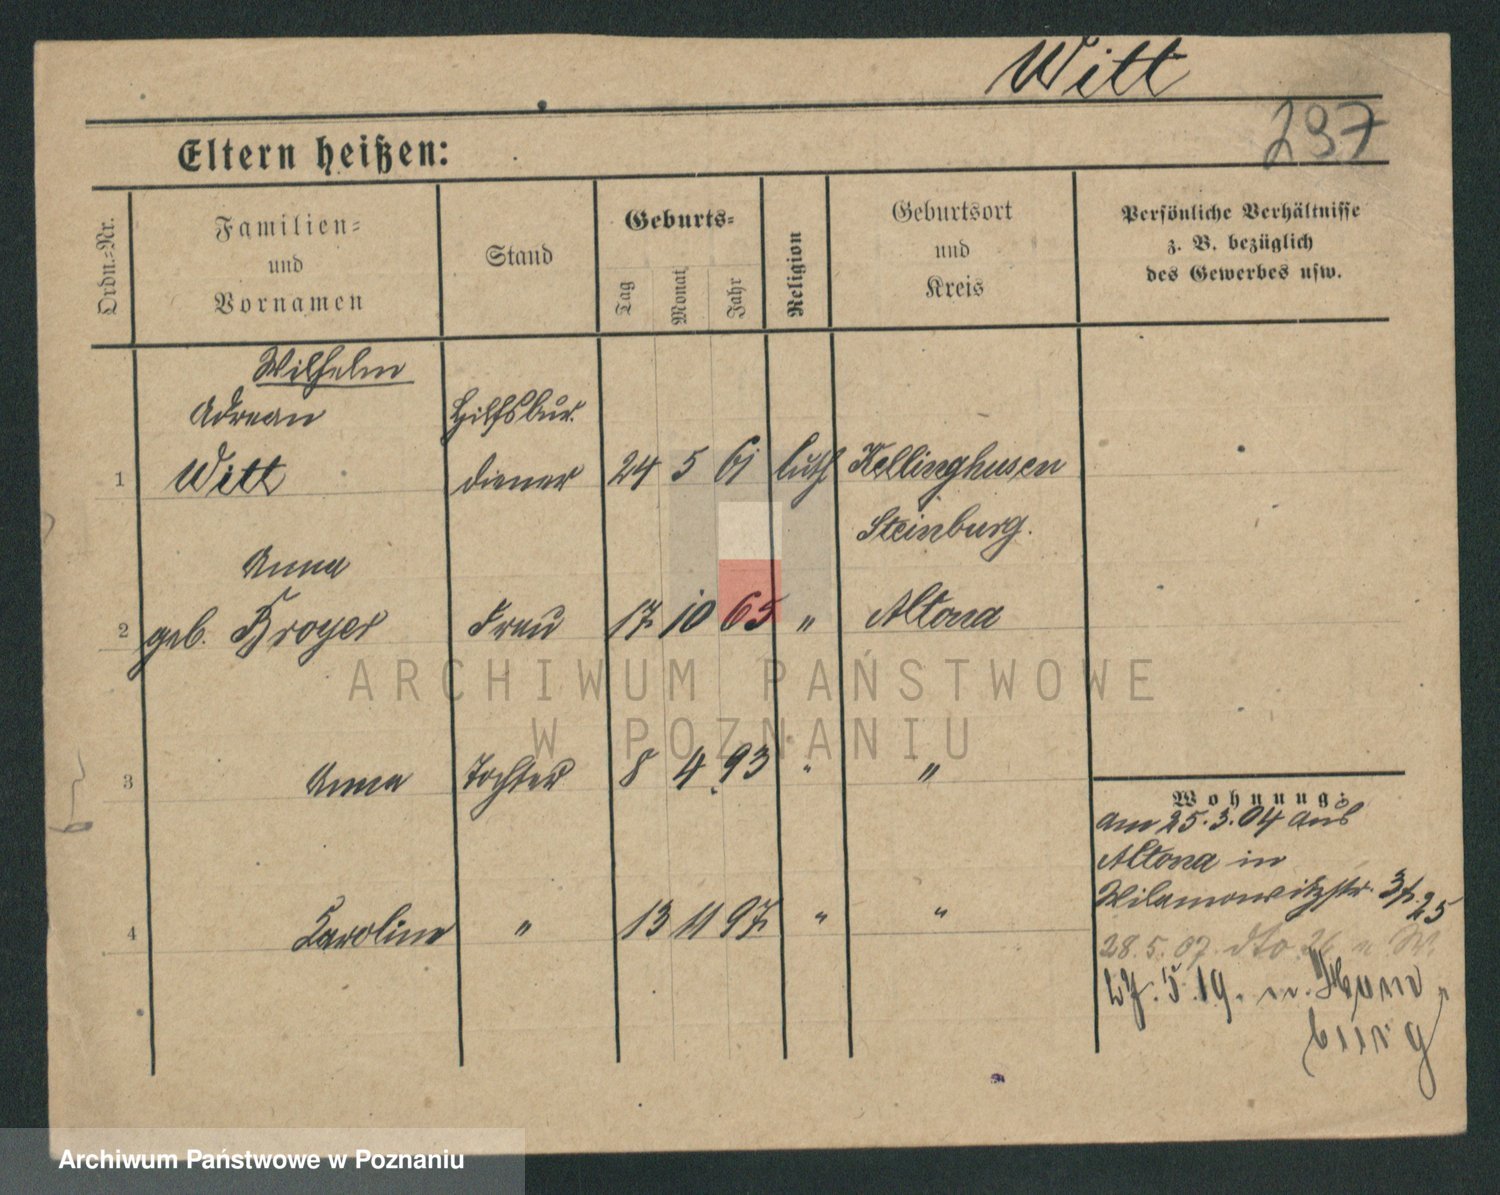 Witt
237
Eltern heißen:
Ordn.-Nr.
Familien-
und
Vornamen
Stand
Geburts-
Tag
Monat
Jahr
Religion
Geburtsort
und
Kreis
Persönliche Verhältnisse
z. B. bezüglich
des Gewerbes usw.
Wilhelm
Adrean Hilfsbur.
1 Witt diener 24 5 61 luth Kellinghusen
Steinburg.
Anna
2 geb. Kroyer Frau 17 10 65 " Altona
ARCHIWUM PAŃSTWOWE
W POZNANIU
3 Anna Tochter 8 4 93 " "
Wohnung:
am 25.3.04 aus
Altona in
Wilamowitzstr. 3
25
4 Karoline " 13 11 97 " "
28.5.07. dto 26 n W.
27.5.19. n. Ham
burg
Archiwum Państwowe w Poznaniu